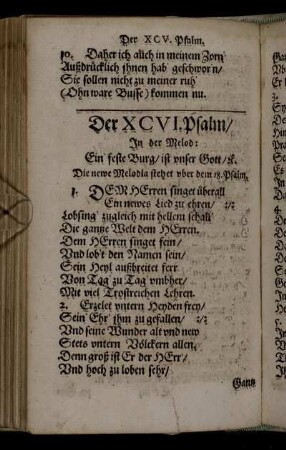 Der XCV. Psalm.
10. Daher ich auch in meinem Zorn
Außdrücklich jhnen hab geschwor'n/
Sie sollen nicht zu meiner ruh
(Ohn ware Busse) kommen nu.
Der XCVI. Psalm/
In der Melod:
Ein feste Burg/ ist vnser Gott/ &c.
Die newe Melodia stehet vber dem 18. Psalm.
1. DEM HErren singet überall
Ein newes Lied zu ehren/ :/:
Lobsing' zugleich mit hellem schall
Die gantze Welt dem HErren.
Dem HErren singet fein/
Vnd lob't den Namen sein/
Sein Heyl außbreitet ferr
Von Tag zu Tag vmbher/
Mit viel Trostreichen Lehren.
2. Erzelet vntern Heyden frey/
Sein' Ehr' jhm zu gefallen/ :/:
Vnd seine Wunder alt vnd new
Stets vntern Völckern allen,
Denn groß ist Er der HErr/
Vnd hoch zu loben sehr/
Gantz